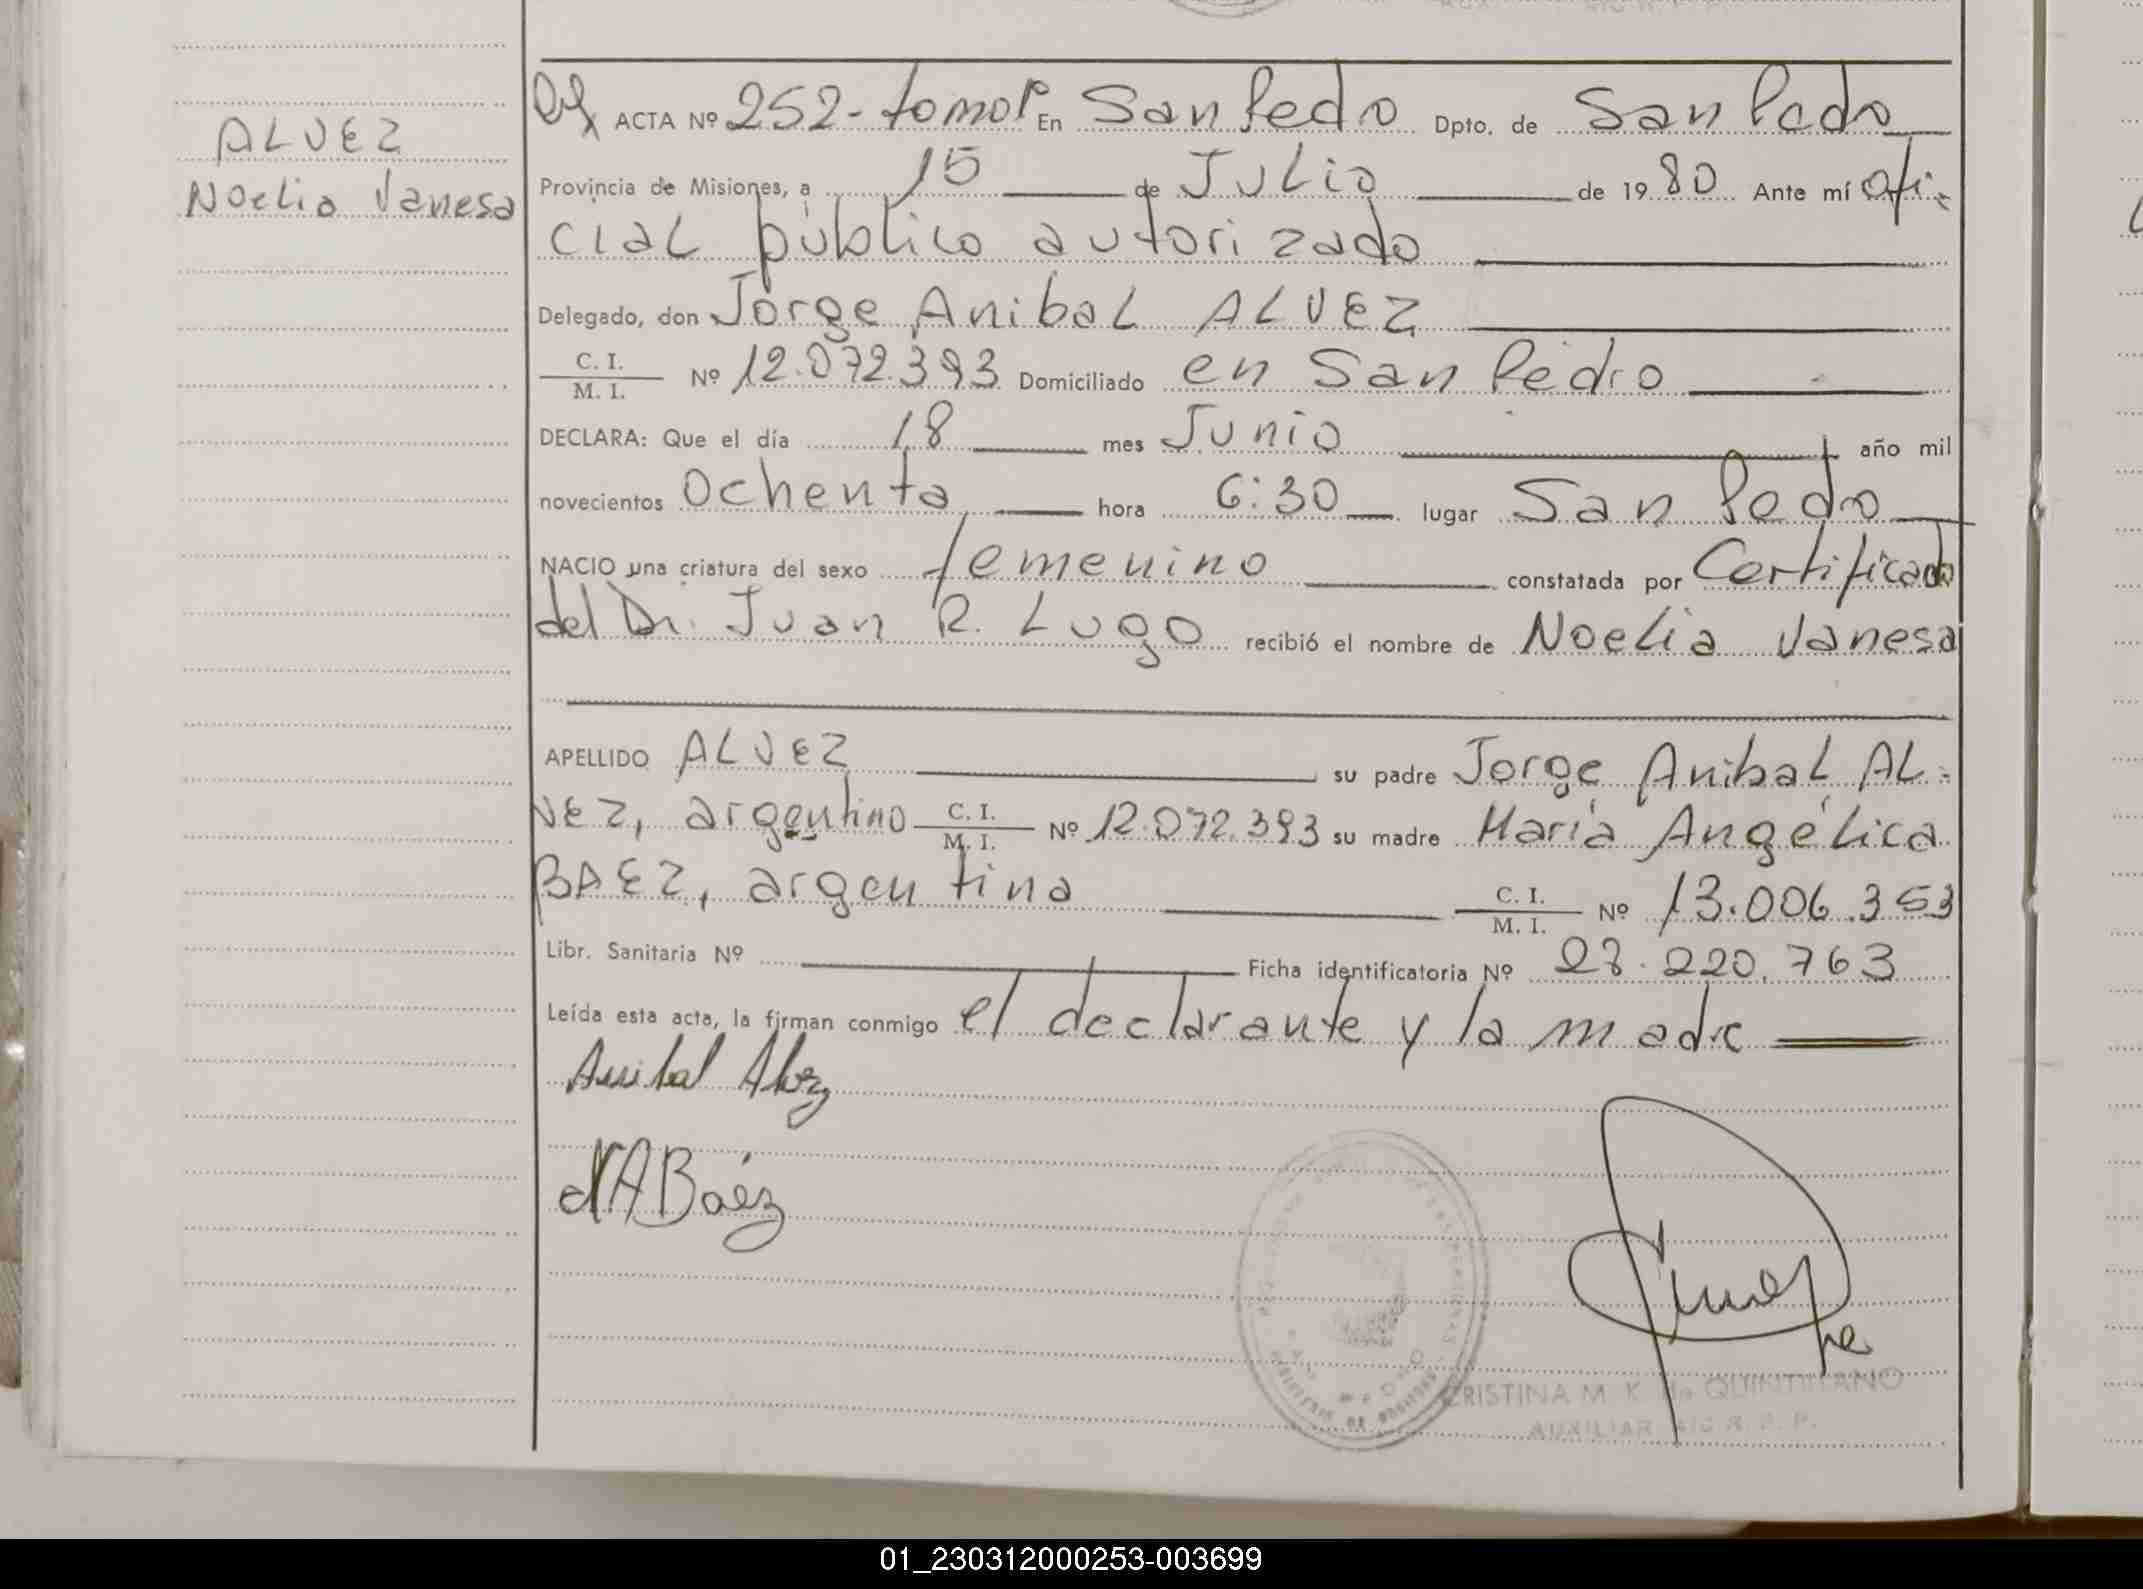 ALVEZ
Noelia Vanesa
ACTA Nº 252 - tomo 1º En San Pedro Dpto. de San Pedro
Provincia de Misiones, a 15 de Julio de 1980 Ante mí ofi-
cial público autorizado
Delegado, don Jorge Anibal ALVEZ
C. I.
M. I. Nº 12.072.393 Domiciliado en San Pedro
DECLARA: Que el día 18 mes Junio año mil
novecientos Ochenta hora 6:30 lugar San Pedro
NACIO una criatura del sexo femenino constatada por Certificado
del Dr. Juan R. Lugo recibió el nombre de Noelia Vanesa
APELLIDO ALVEZ su padre Jorge Anibal AL-
VEZ, argentino C. I. M. I. Nº 12.072.393 su madre María Angélica
BAEZ, argentina C. I. M. I. Nº 13.006.353
Libr. Sanitaria Nº Ficha identificatoria Nº 28.220.763
Leída esta acta, la firman conmigo el declarante y la madre
Anibal Alvez
MABáez
CRISTINA M. K. de QUINTITANO
AUXILIAR
01_230312000253-003699